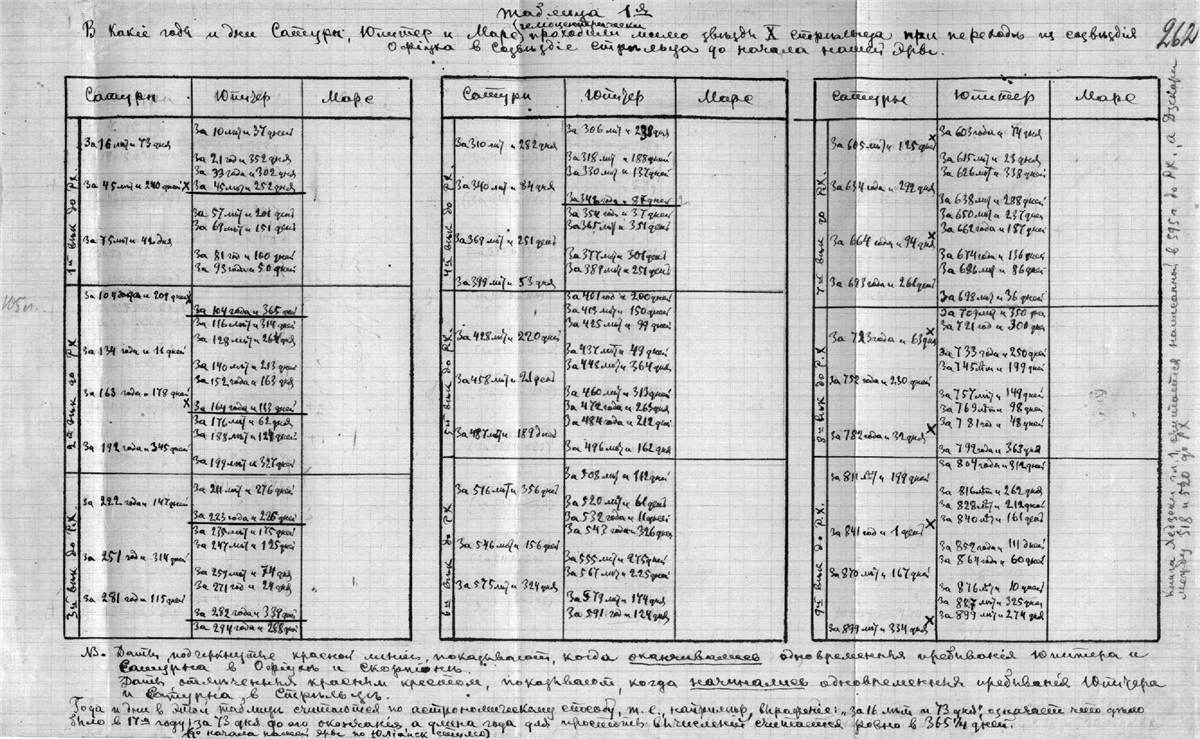 Таблица 1я
262
(гемоцентрически
В какіе годы и дни Сатурн, Юпитер и Марс проходили мимо звѣзды X Стрѣльца при переходѣ из созвѣздія
Офіуха в Созвѣздіе Стрѣльца до начала нашей Эры.
Сатурн Юпитер Марс
1й вѣк до Р.Х.
За 10 лѣт и 37 дней
За 16 лѣт и 73 дня
За 21 год и 352 дня
За 33 года и 302 дня
За 45 лѣт и 240 дней X За 45 лѣт и 252 дня
За 57 лѣт и 201 день
За 69 лѣт и 151 день
За 75 лѣт и 42 дня
За 81 год и 100 дней
За 93 года и 50 дней
105 г.
2й вѣк до Р.Х
За 104 года и 201 день X
За 104 года и 365 дней
За 116 лѣт и 314 дней
За 128 лѣт и 264 дня
За 134 года и 11 дней
За 140 лѣт и 213 дней
За 152 года и 163 дня
За 163 года и 178 дней
X За 164 года и 113 дней
За 176 лѣт и 62 дня
За 188 лѣт и дней
За 192 года и 345 дней
За 199 лѣт и 327 дней
3й вѣк до Р.Х.
За 211 лѣт и 276 дней
За 222 года и 147 дней
За 223 года и 226 дней
За 235 лѣт и 175 дней
За 247 лѣт и 125 дней
За 251 год и 314 дней
За 259 лѣт и 74 дня
За 271 год и 24 дня
За 281 год и 115 дней
За 282 года и 339 дней
За 294 года и 288 дней
Сатурн Юпитер Марс
4й вѣк до Р.Х.
За 306 лѣт и дней
За 310 лѣт и 282 дня
За 318 лѣт и 188 дней
За 330 лѣт и 137 дней
За 340 лѣт и 84 дня
За 342 года и 87 дней
За 354 года и 37 дней
За 365 лѣт и 351 день
За 369 лѣт и 251 день
За 377 лѣт и 301 день
За 389 лѣт и 251 день
За 399 лѣт и 53 дня
5й вѣк до Р.Х.
За 401 год и 200 дней
За 413 лѣт и 150 дней
За 425 лѣт и 99 дней
За 428 лѣт и 220 дней
За 437 лѣт и 49 дней
За 448 лѣт и 364 дня
За 458 лѣт и 21 день
За 460 лѣт и 313 дней
За 472 года и 263 дня
За 484 года и 212 дней
За 487 лѣт и 189 дней
За 496 лѣт и 162 дня
6й вѣк до Р.Х
За 508 лѣт и 112 дней
За 516 лѣт и 356 дней
За 520 лѣт и 61 день
За 532 года и 11 дней
За 543 года и 326 дней
За 546 лѣт и 156 дней
За 555 лѣт и 275 дней
За 567 лѣт и 225 дней
За 575 лѣт и 324 дня
За 579 лѣт и 174 дня
За 591 год и 124 дня
Сатурн Юпитер Марс
7й вѣк до Р.Х.
За 603 года и 74 дня
За 605 лѣт и 125 дней X
За 615 лѣт и 23 дня
За 626 лѣт и 338 дней
За 634 года и 292 дня
За 638 лѣт и 288 дней
За 650 лѣт и 237 дней
За 662 года и 187 дней
За 664 года и 94 дня X
За 674 года и 136 дней
За 686 лѣт и 86 дней
За 693 года и 261 день
За 698 лѣт и 36 дней
8й вѣк до Р.Х
За 709 лѣт и 350 дней
За 721 год и 300 дней
За 723 года и 63 дня X
За 733 года и 250 дней
За 745 лѣт и 199 дней
За 752 года и 230 дней
За 757 лѣт и 149 дней
За 769 лѣт и 98 дней
За 781 год и 48 дней
За 782 года и 32 дня X
За 792 года и 363 дня
9й вѣк до Р.Х.
За 804 года и 312 дней
За 811 лѣт и 199 дней
За 816 лѣт и 262 дня
За 828 лѣт и 212 дней
За 840 лѣт и 161 день
За 841 год и 1 день X
За 852 года и 111 дней
За 864 года и 60 дней
За 870 лѣт и 167 дней
За 876 лѣт и 10 дней
За 887 лѣт и 325 дней
За 899 лѣт и 274 дня
За 899 лѣт и 334 дня X
считается написанной в 595 г. до Р.Х., а
между 518 и 520 до Р.Х
NB. Даты, подчеркнутые красной линіей, показывают, когда оканчивалось одновременное пребываніе Юпитера и
Сатурна в Офіухѣ и Скорпіонѣ.
Даты отмѣченныя красным крестом, показывают, когда начиналось одновременное пребываніе Юпитера
и Сатурна в Стрѣльцѣ.
Года и дни в этой таблицѣ считаются по астрономическому способу, т.е., например, выраженіе: „за 16 лѣт и 73 дня" означает что дѣло
было в 17м году, за 73 дня до его окончанія, а длина года для простоты вычисленій считается ровно в 365¼ дней.
(до начала нашей эры по Юліанск. стилю)